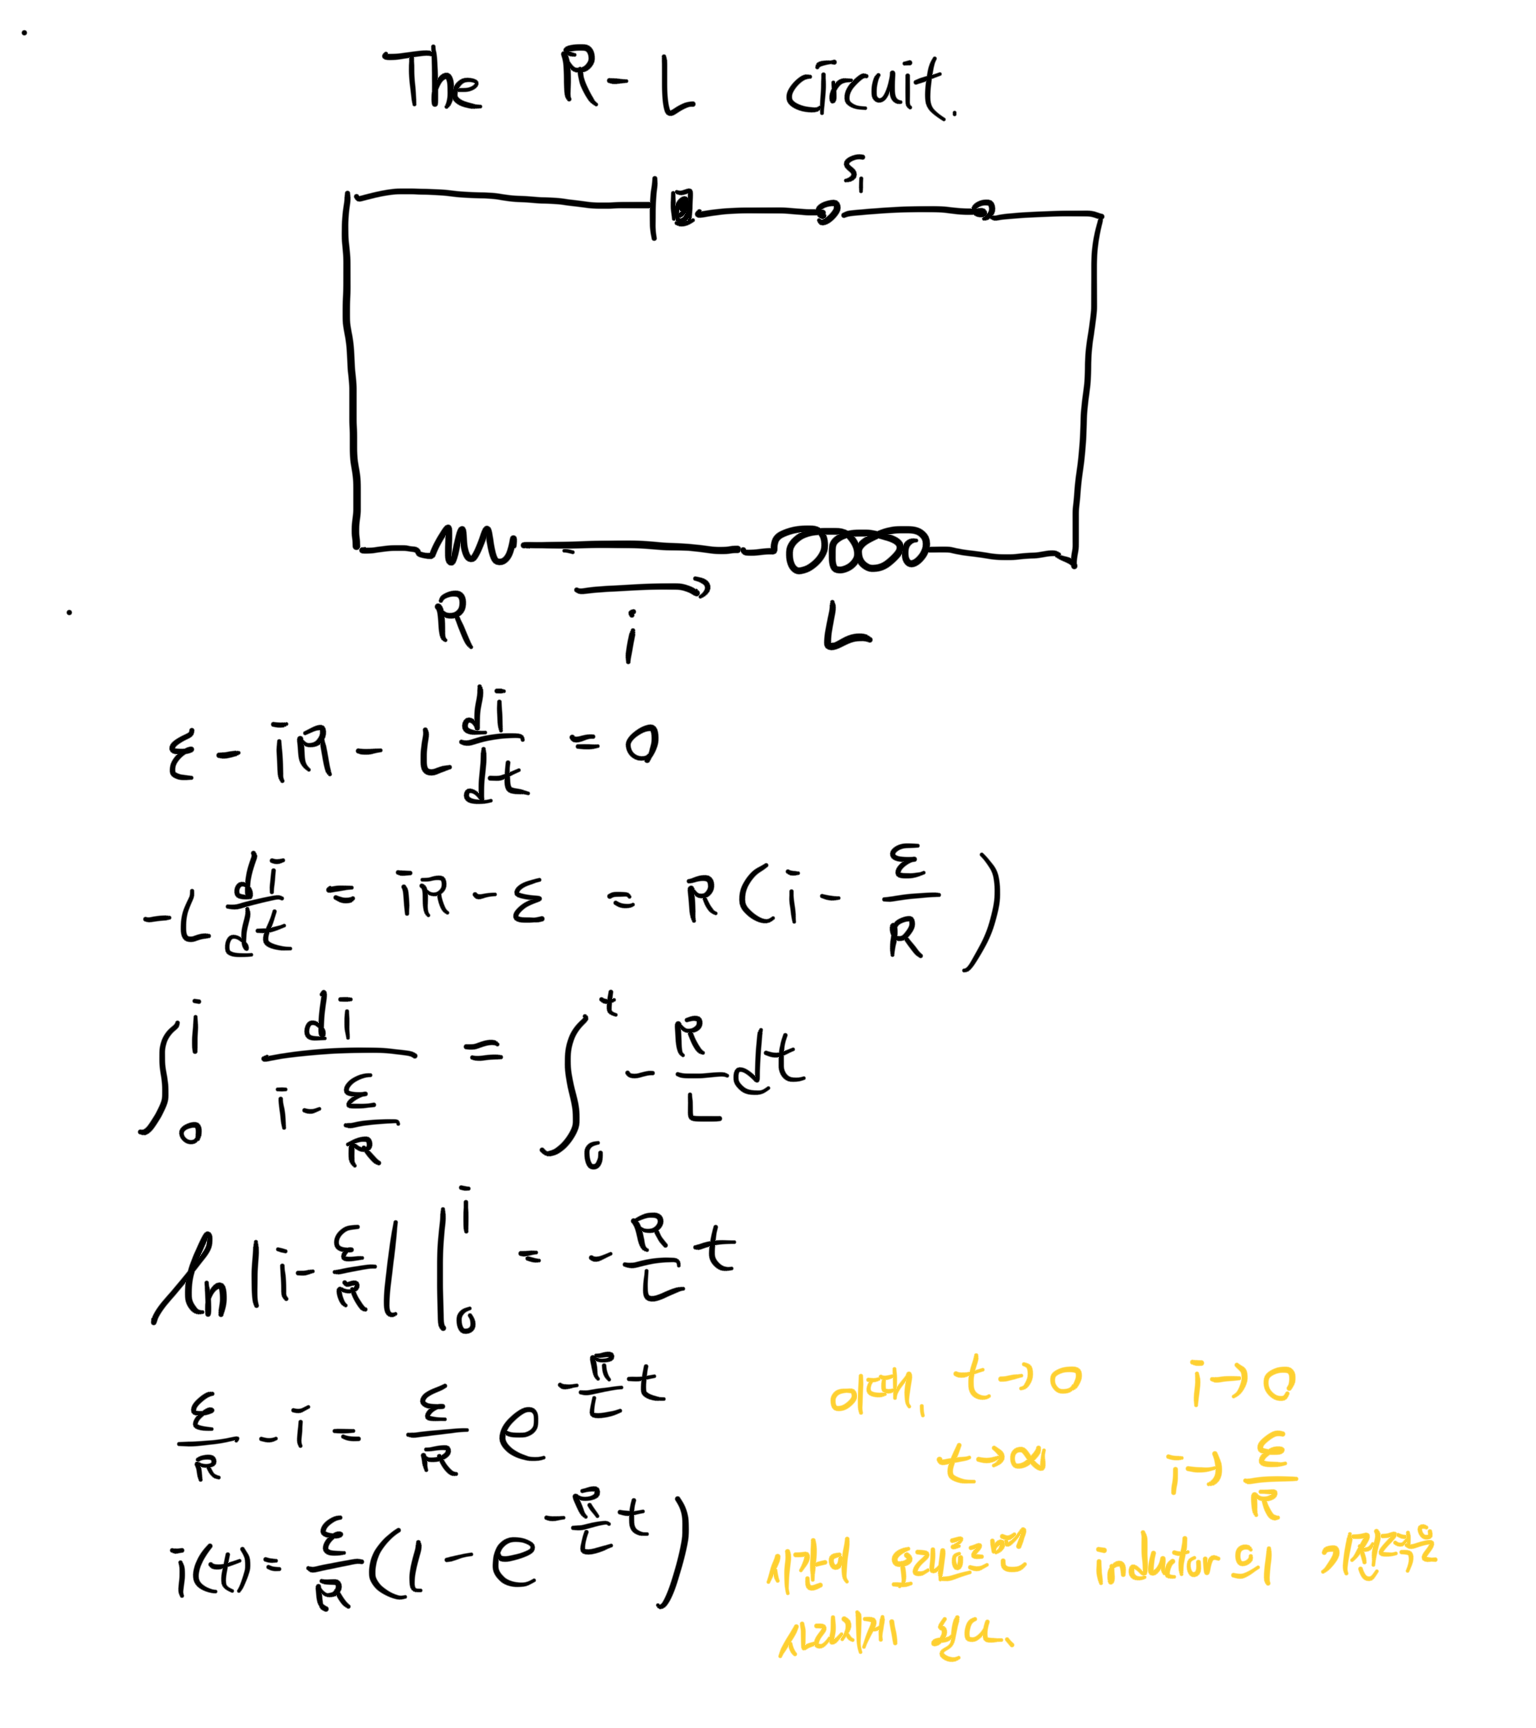 The R-L circuit.
S₁
R
i
L
ε - iR - L di/dt = 0
-L di/dt = iR - ε = R(i - ε/R)
∫₀ⁱ di/(i - ε/R) = ∫₀ᵗ -R/L dt
ln|i - ε/R| |₀ⁱ = -R/L t
ε/R - i = ε/R e^(-R/L t)
i(t) = ε/R (1 - e^(-R/L t))
이때, t → 0 i → 0
t → ∞ i → ε/R
시간이 오래흐르면 inductor의 기전력은
사라지게 된다.